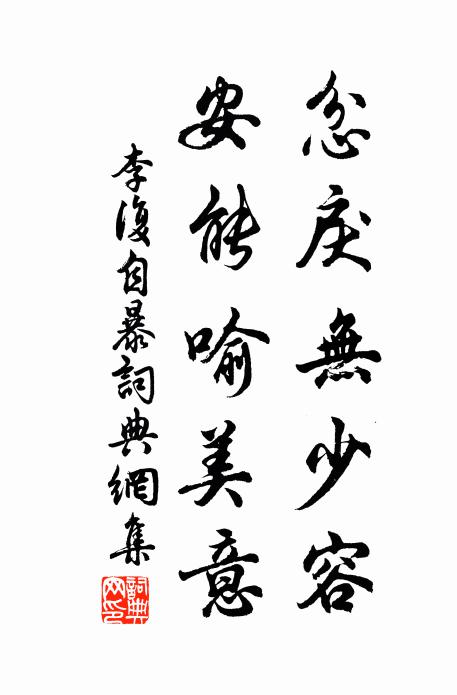 忿戾無少容
安能喻美意
李復自暴詞典網集
詞典网印